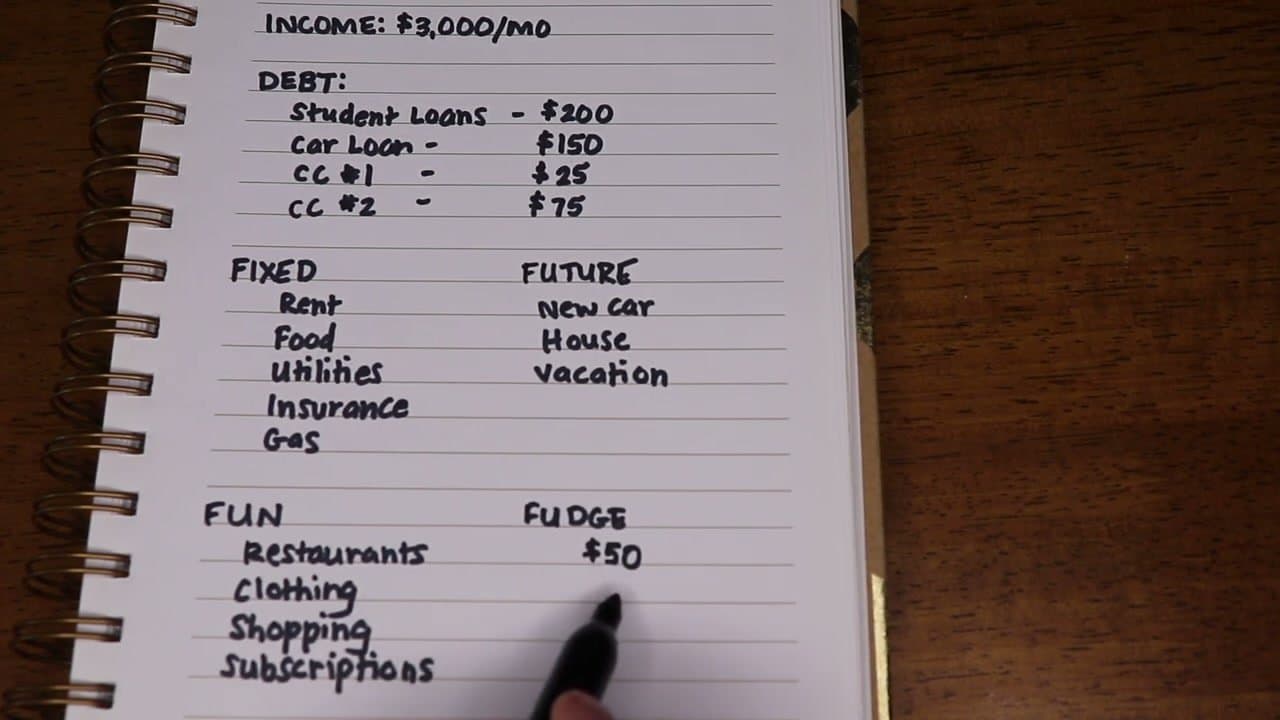 INCOME: $3,000/MO
DEBT:
Student Loans - $200
Car Loan - $150
CC #1 - $25
CC #2 - $75
FIXED
Rent
Food
Utilities
Insurance
Gas
FUTURE
New car
House
Vacation
FUN
Restaurants
Clothing
Shopping
Subscriptions
FUDGE
$50